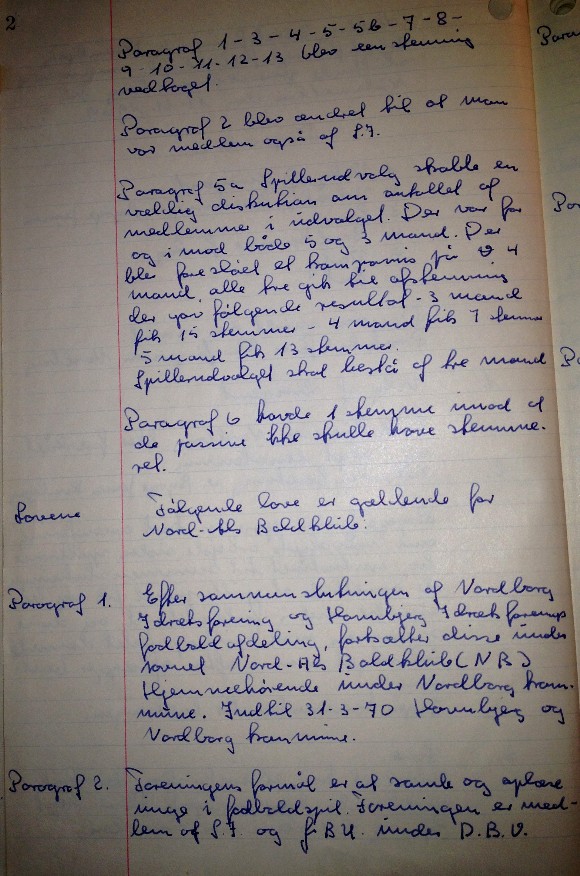 2
Paragraf 1-3-4-5-5b-7-8-
9-10-11-12-13 blev eenstemmig
vedtaget.
Paragraf 2 blev ændret til at man
var medlem også af S.I.
Paragraf 5a Spillerudvalg skabte en
vældig diskution om antallet af
medlemmer i udvalget. Der var for
og imod både 5 og 3 mand. Der
blev foreslået et kompromis på 4
mand, alle tre gik til afstemning
der gav følgende resultat - 3 mand
fik 15 stemmer - 4 mand fik 7 stemmer
5 mand fik 13 stemmer.
Spillerudvalget skal bestå af tre mand
Paragraf 6 havde 1 stemme imod at
de passive ikke skulle have stemme-
ret.
Lovene
Følgende love er gældende for
Nord-Als Boldklub.
Paragraf 1.
Efter sammenslutningen af Nordborg
Idrætsforening og Havnbjerg Idrætsforenings
fodboldafdeling, fortsætter disse under
navnet Nord-Als Boldklub (NB)
Hjemmehørende under Nordborg kom-
mune. Indtil 31-3-70 Havnbjerg og
Nordborg kommune.
Paragraf 2.
Foreningens formål er at samle og oplære
unge i fodboldspil. Foreningen er med-
lem af S.I. og J.B.U. under D.B.U.
Para
Par
Pa